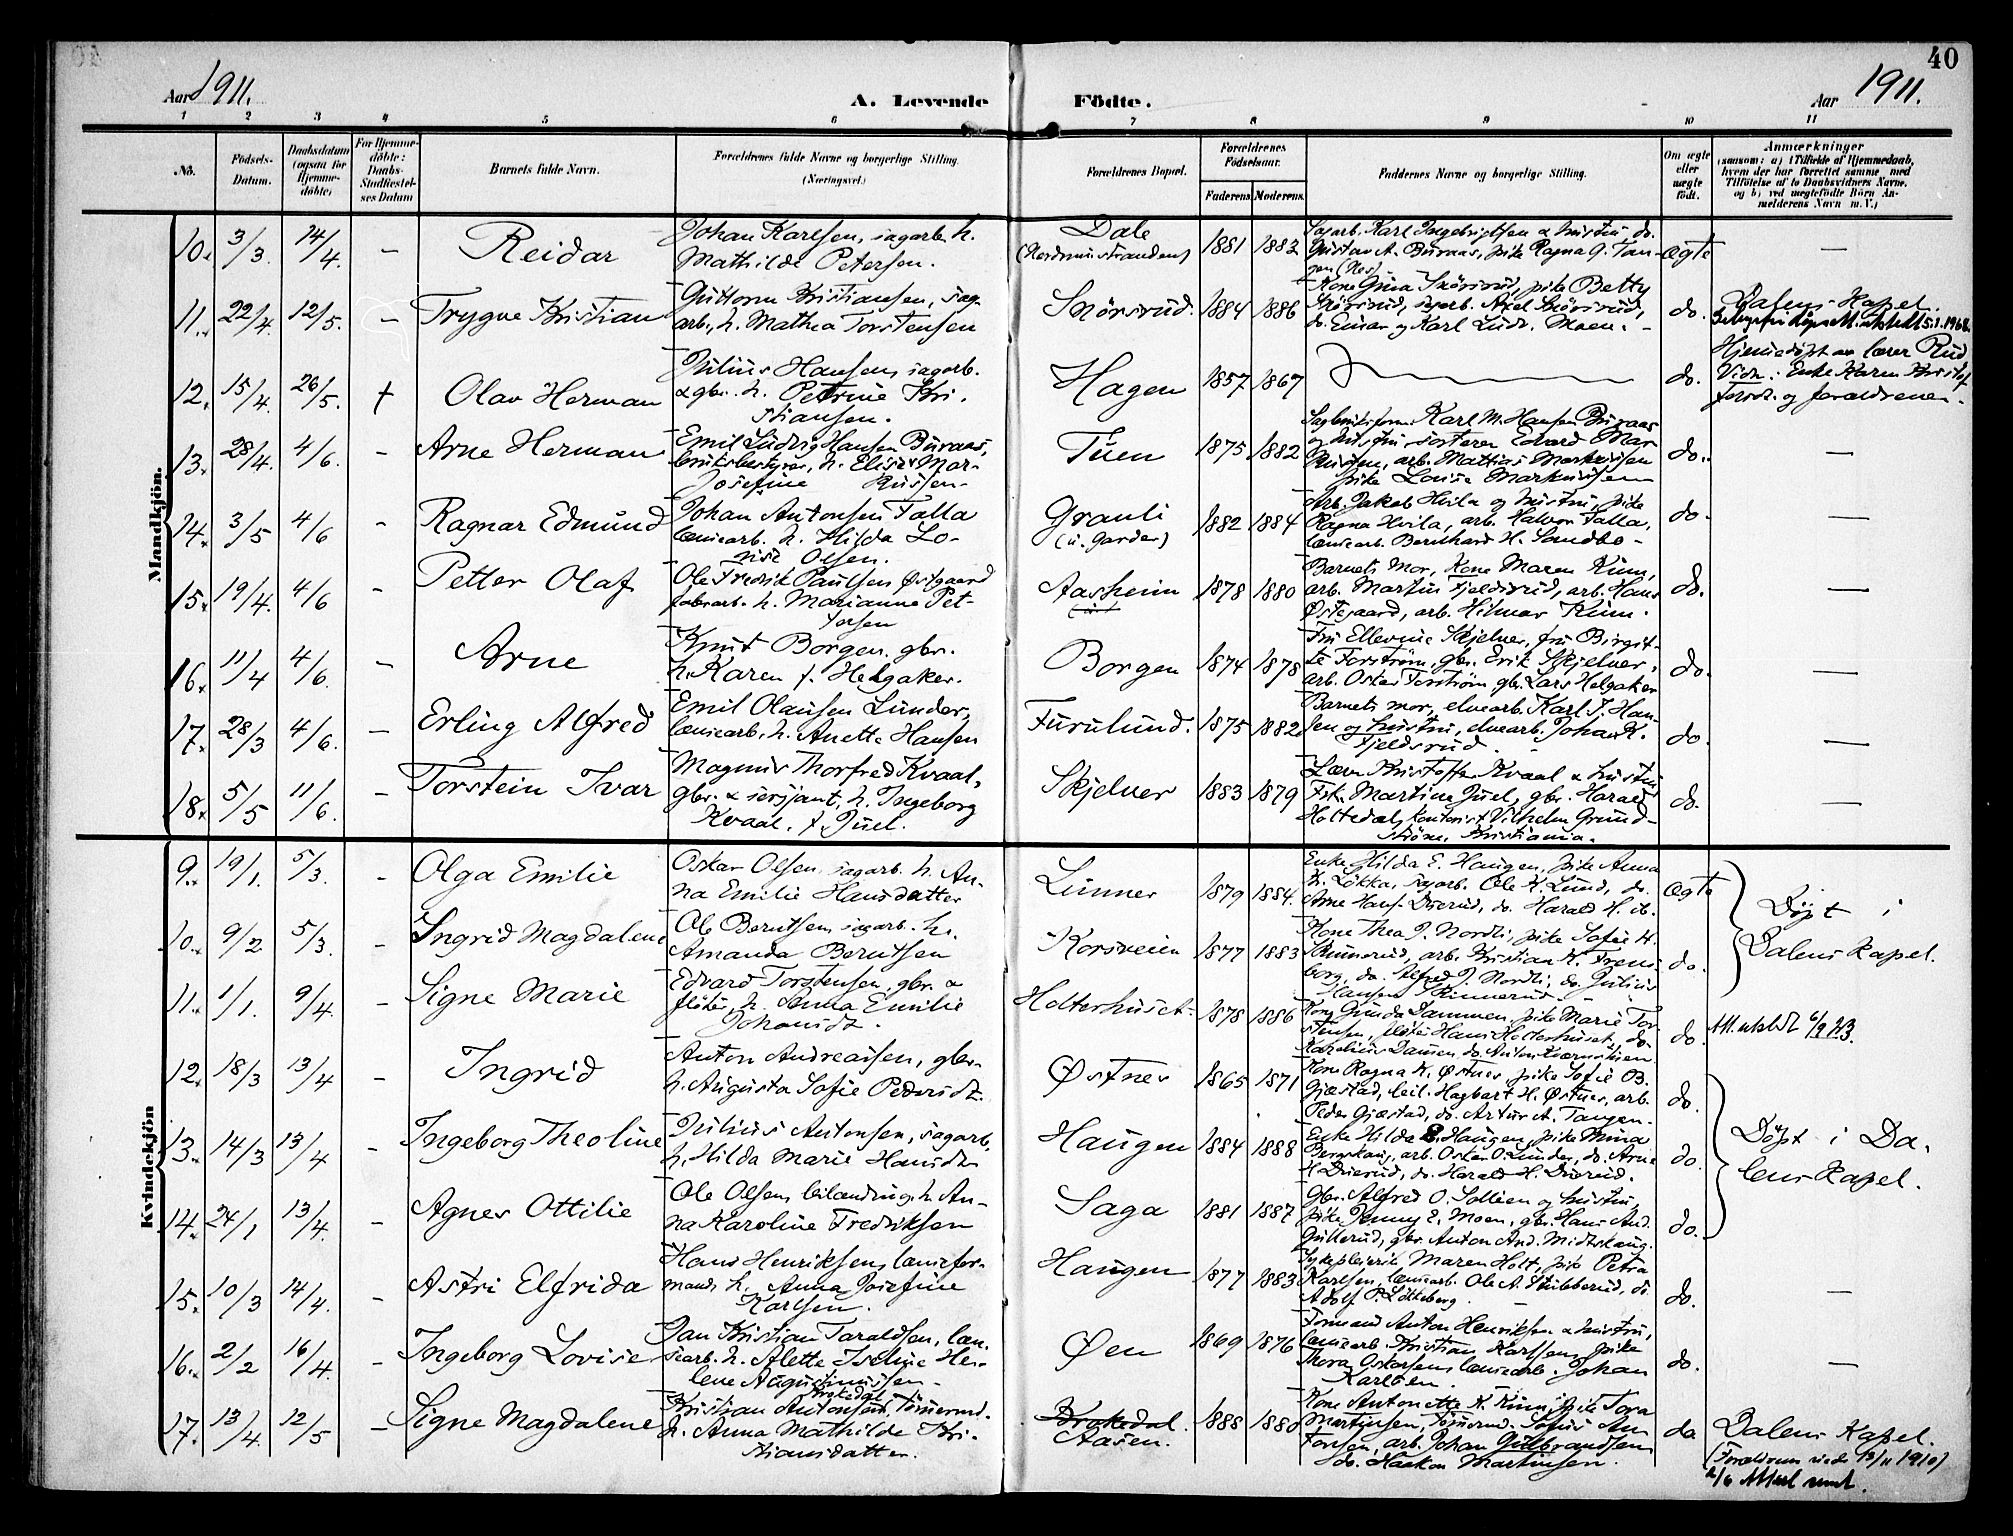 40
Aar 1911.
A. Levende Födte.
Aar 1911.
1 2 3 4 5 6 7 8 9 10 11
No.
Födsels-Datum.
Daabsdatum (ogsaa for Hjemmedöbte)
For Hjemmedöbte: Daabs-Stadfæstelses Datum
Barnets fulde Navn.
Forældrenes fulde Navne og borgerlige Stilling.
(Næringsvei.)
Forældrenes Bopæl.
Forældrenes Födselsaar.
Faderens Moderens
Faddernes Navne og borgerlige Stilling.
Om ægte eller uægte födt.
Anmærkninger
(saasom: a) i Tilfælde af Hjemmedaab,
hvem der har forrettet samme med
Tilföielse af to Daabsvidners Navne,
og b) ved uægtefödte Börn An-
melderens Navn m. V.)
Mandkjön.
10. 3/3. 14/4. – Reidar
Johan Karlsen, sagarb. h.
Mathilde Petersen.
Dale
1881 1883
Sagarb. Karl Ingebrigtsen & hustru do.
Gustav A. Buraas, pike Ragna G. Tan-
gen (Nes)
ægte –
11. 22/4. 12/5. – Trygve Kristian
Guttorm Kristiansen, sag-
arb., h. Mathea Torstensen
Snörsrud. 1884 1886
Kone Gina Snörsrud, pike Betty
Snörsrud, sagarb. Axel Snörsrud,
do. Einar og Karl Ludv. Moen.
do.
Dalens Kapel.
12. 15/4. 26/5. † Olav Herman
Julius Hansen, sagarb.
& gbr. h. Petrine Kri-
stiansen.
Hagen 1857 1867
do.
Hjemedöpt av lærer Rud
Vidn: Enke Karen Kristof
fersdt. og forældrenen.
13. 28/4. 4/6. – Arne Herman
Emil Ludvig Hansen Buraas,
bruksbestyrer, h. Elise Mar-
Josefine Russen
Tuen 1875 1882
Karl M. Hansen Buraas
og hustru, sorterer Edvard Mar
Russen, arb. Mattias Markussen
pike Louise Markussen
do. –
14. 3/5 4/6 – Ragnar Edmund
Johan Antonsen Talla
lænsearb. h. Hilda Lo-
vise Olsen.
Grauli
(u. Garder)
1882 1884
Arb. Jakob Hvila og hustru, pike
Ragna Hvila, arb. Halvor Talla,
lænsearb. Bernhard H. Sandbo
do. –
15. 19/4. 4/6 – Petter Olaf
Ole Fredrik Paulsen Østgaard
h. Marianne Pet-
tersen
Aasheim 1878 1880
Barnets Mor, Kone Maren Kinn,
arb. Martin Fjeldsrud, arb. Hans
Østgaard, arb. Hilmar Kinn.
do. –
16. 11/4 4/6. – Arne
Knut Borgen, gbr.
h. Karen f. Helgaker.
Borgen 1874 1878
Fru Ellevine Skjelver, fru Birgit-
te Forström, gbr. Erik Skjelver,
arb. Oskar Forström gbr. Lars Helgaker
do. –
17. 28/3 4/6. – Erling Alfred
Emil Olausen Lunder,
lænsearb. h. Anette Hansen
Furulund. 1875 1882
Barnets mor, elvearb. Karl J. Han-
sen og hustru, elvearb. Johan K.
Fjeldsrud.
do. –
18. 5/5 11/6. – Torstein Ivar
Magnus Thorfred Kvaal,
gbr. & sersjant, h. Ingeborg
Kvaal, f. Juel.
Skjelver 1883 1879
Lærer Kristoffer Kvaal & hustru
Frk. Martine Juel, gbr. Harald
Holtedal, kontorist Vilhelm Grund-
ström, Kristiania.
do. –
Kvindekjön
9. 19/1. 5/3. – Olga Emilie
Oskar Olsen, sagarb. h. An-
na Emilie Hansdatter
Lunner 1879 1884.
Enke Hilda E. Haugen, pike Anna
K. Lökka, sagarb. Ole K. Lund, do.
Arne Hans. Duerud, do. Harald H. ib.
ægte
Döpt i
Dalens Kapel.
10. 9/2 5/3. – Ingrid Magdalene
Ole Berntsen, sagarb. h.
Amanda Berntsen
Korsveien 1877 1883
Kone Thea J. Nordli, pike Sofie H.
Skinnerud, arb. Kristian K.
do. Alfred J. Nordli, do. Julius
Hansen Skinnerud.
do.
11. 1/1. 9/4. – Signe Marie
Edvard Torstensen, gbr. &
flöter, h. Anna Emilie
Johansdt.
Holterhuset. 1878 1886
Kone Gunda Dammen, pike Marie Tor-
stensen, flöter Hans Holterhuset, do.
do.
Att. utstedt 6/9 23.
12. 18/3 13/4 – Ingrid
Anton Andreassen, gbr.
h. Augusta Sofie Pedersdt.
Østnes 1865 1871
Kone Ragna K. Østnes, pike Sofie B.
Gjæstad, leil. Hagbart H. Østnes, arb.
Peder Gjæstad, do. Artur A. Tangen.
do.
Döpt i Da-
lens Kapel.
13. 14/3 13/4 – Ingeborg Theoline
Julius Antonsen, sagarb.
h. Hilda Marie Hansdt.
Haugen 1884 1888
Enke Hilda E. Haugen, pike Mina
Bergskaug, arb. Oskar O. Lunder, do. Arne
H. Duerud, do. Harald H. Duerud.
do.
14. 24/1 13/4. – Agnes Ottilie
Ole Olsen, leilænding, h. An-
na Karoline Fredriksen
Saga 1881 1887
Gbr. Alfred O. Sollien og hustru,
pike Jenny E. Moen, gbr. Hans And.
Gullerud, gbr. Anton And. Midtskaug.
do.
15. 10/3 14/4. – Astri Elfrida
Hans Henriksen, lænsefor-
mand, h. Anna Josefine
Karlsen.
Haugen 1877 1883
Sykepleierik Maren Holt, pike Petra
Karlsen, lænsearb. Ole A. Stubberud, do.
Adolf P. Lökkeberg.
do. –
16. 2/2 16/4. – Ingeborg Lovise
Jan Kristian Taraldsen, læn-
searb. h. Alette Iseline He-
lene Augustinussen
Øen 1869 1876
Formand Anton Henriksen & hustru,
lænsearb. Kristian Karlsen, pike
Thora Oskarsen, lænsearb. Johan
Karlsen.
do. –
17. 13/4. 12/5 – Signe Magdalene
Brokedal
Kristian Antonsen, Tömmermd.
h. Anna Mathilde Kri-
stiansdatter.
Brokedal
Aasen.
1888 1880
Kone Antonette K. Kinn, pike Tora
Martinsen, Tömmermd. Sofus An
tonsen, arb. Johan Gulbrandsen
do. Haakon Martinsen.
do
Dalens Kapel.
(Forældrene viede 13/11 1910)